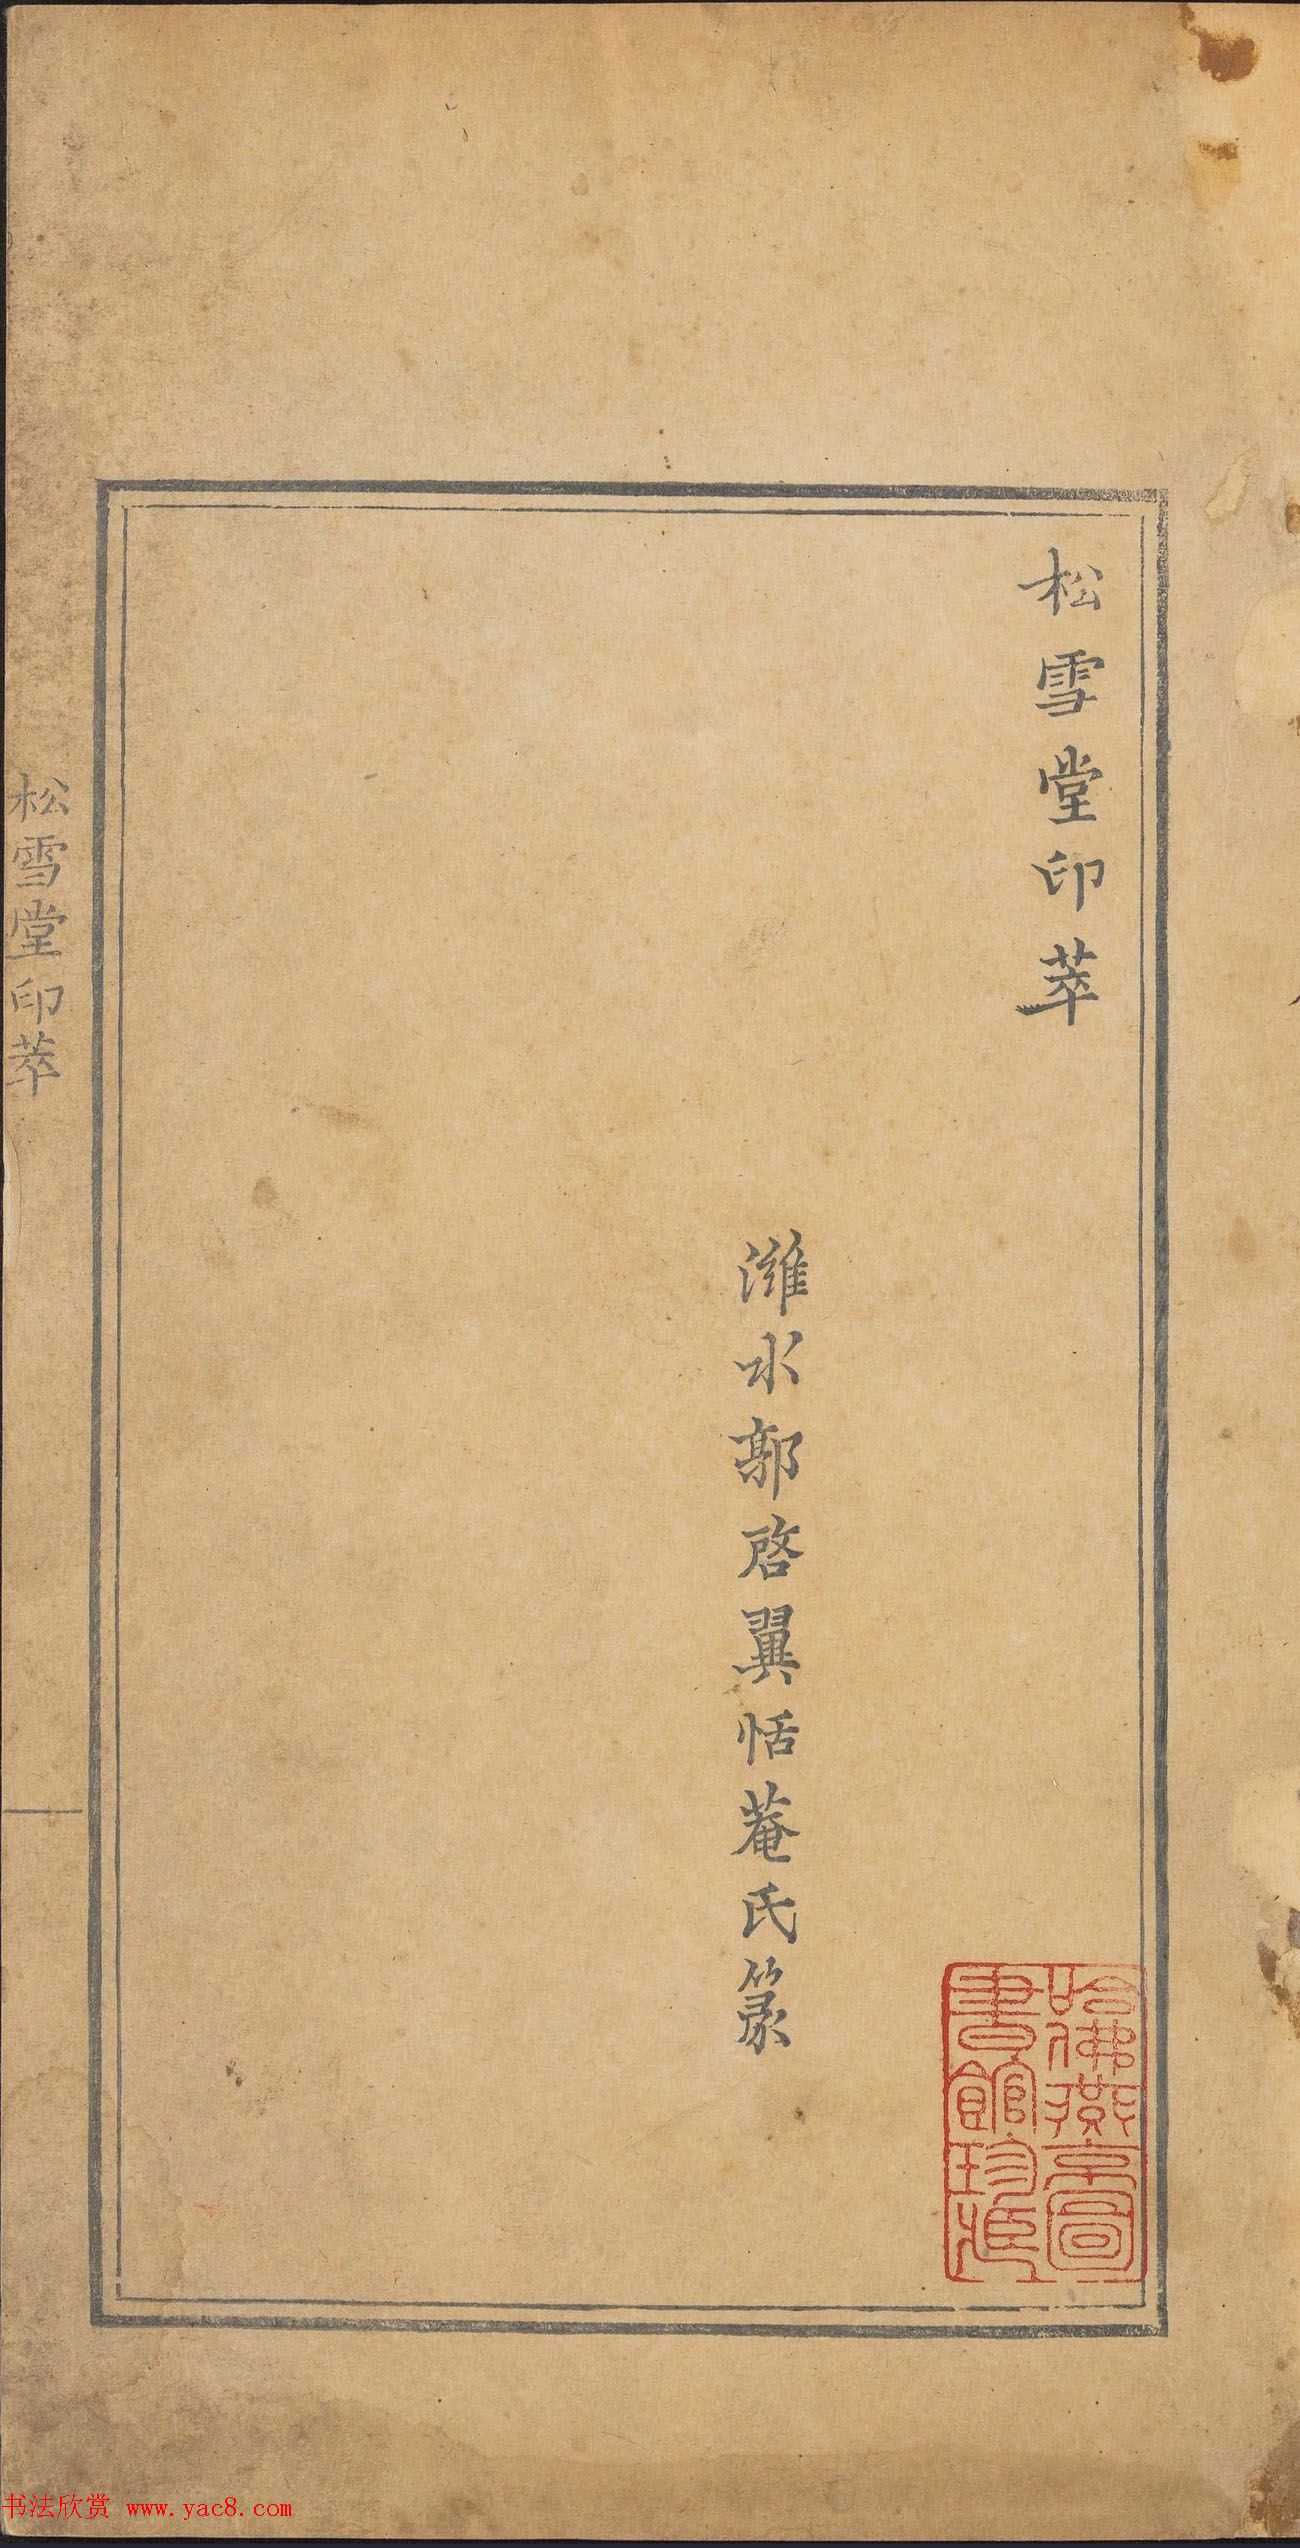 松雪堂印萃
濰水郭啓翼恬菴氏篆
哈佛燕京圖
書館珍藏
松雪堂印萃
书法欣赏 www.yac8.com